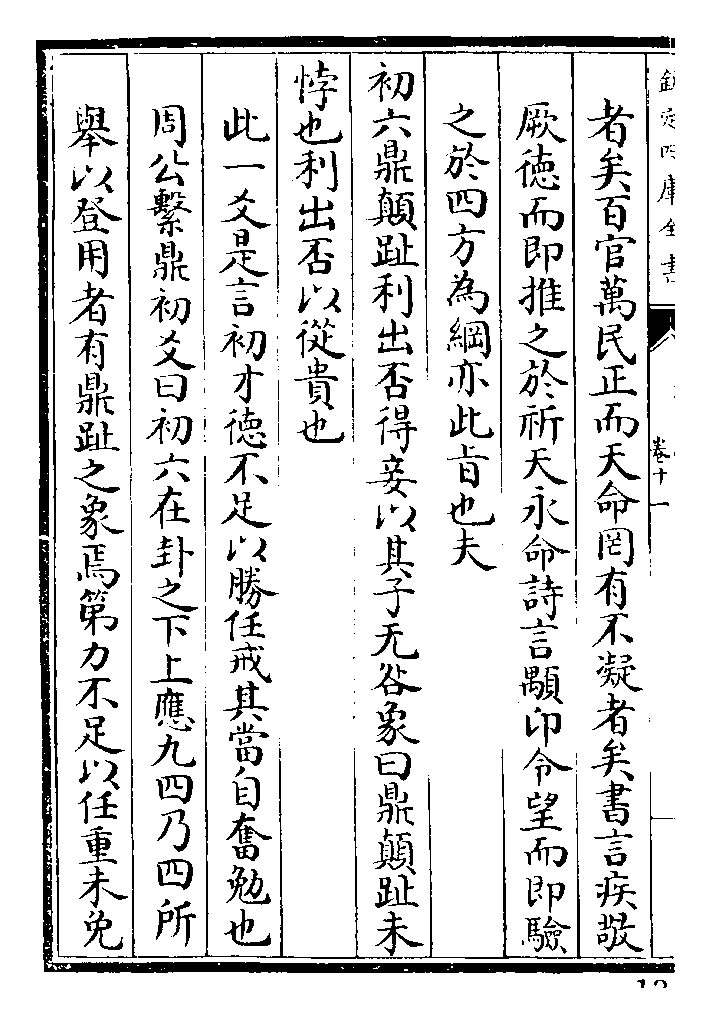 欽定四庫全書
卷十一
者矣百官萬民正而天命罔有不凝者矣書言疾敬
厥德而即推之於祈天永命詩言顒卬令望而即驗
之於四方為綱亦此旨也夫
初六鼎顛趾利出否得妾以其子无咎象曰鼎顛趾未
悖也利出否以從貴也
此一爻是言初才德不足以勝任戒其當自奮勉也
周公繫鼎初爻曰初六在卦之下上應九四乃四所
舉以登用者有鼎趾之象焉第力不足以任重未免